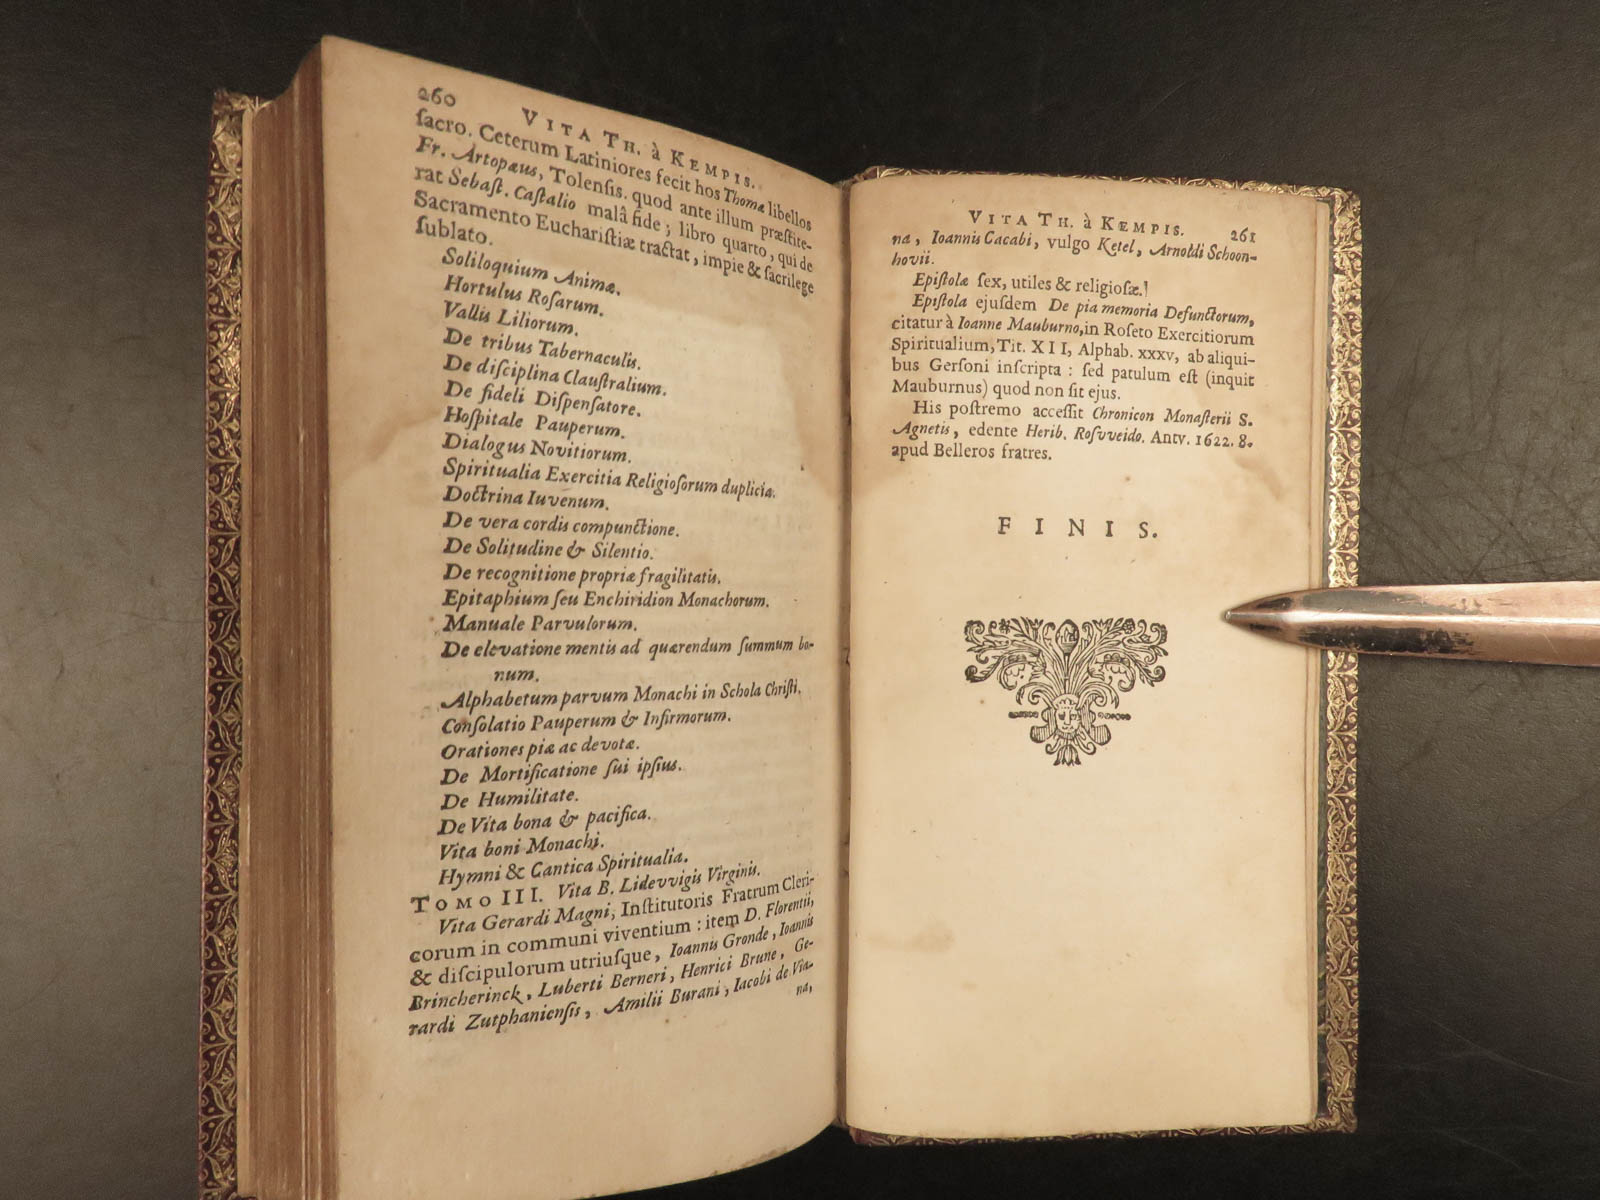 260 VITA TH. à KEMPIS.
ſacro. Ceterum Latiniores fecit hos Thomæ libellos
Fr. Artopæus, Tolenſis. quod ante illum præſtite-
rat Sebaſt. Caſtalio malâ fide; libro quarto, qui de
Sacramento Euchariſtiæ tractat, impie & ſacrilege
ſublato.
Soliloquium Animæ.
Hortulus Roſarum.
Vallis Liliorum.
De tribus Tabernaculis.
De diſciplina Clauſtralium.
De fideli Diſpenſatore.
Hoſpitale Pauperum.
Dialogus Novitiorum.
Spiritualia Exercitia Religioſorum duplicia.
Doctrina Iuvenum.
De vera cordis compunctione.
De Solitudine & Silentio.
De recognitione propriæ fragilitatis.
Epitaphium ſeu Enchiridion Monachorum.
Manuale Parvulorum.
De elevatione mentis ad quærendum ſummum bo-
num.
Alphabetum parvum Monachi in Schola Chriſti.
Conſolatio Pauperum & Infirmorum.
Orationes piæ ac devotæ.
De Mortificatione ſui ipſius.
De Humilitate.
De Vita bona & pacifica.
Vita boni Monachi.
Hymni & Cantica Spiritualia.
TOMO III. Vita B. Lidevvigis Virginis.
Vita Gerardi Magni, Inſtitutoris Fratrum Cleri-
corum in communi viventium: item D. Florentii,
& diſcipulorum utriuſque, Ioannis Gronde, Ioannis
Brincherinck, Luberti Berneri, Henrici Brune, Ge-
rardi Zutphanienſis, Amilii Burani, Iacobi de Via-
na,
VITA TH. à KEMPIS. 261
na, Ioannis Cacabi, vulgo Ketel, Arnoldi Schoon-
hovii.
Epiſtolæ ſex, utiles & religioſæ.
Epiſtola ejuſdem De pia memoria Defunctorum,
citatur à Ioanne Mauburno, in Roſeto Exercitiorum
Spiritualium, Tit. XII, Alphab. xxxv, ab aliqui-
bus Gerſoni inſcripta: ſed patulum eſt (inquit
Mauburnus) quod non ſit ejus.
His poſtremo acceſſit Chronicon Monaſterii S.
Agnetis, edente Herib. Roſvveido. Antv. 1622. 8.
apud Belleros fratres.
FINIS.